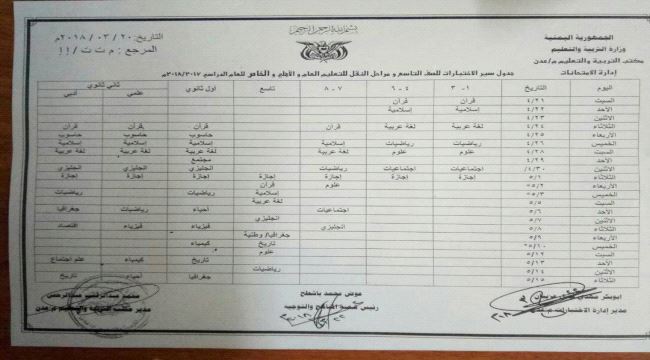 بسم الله الرحمن الرحيم
الجمهورية اليمنية
وزارة التربية والتعليم
مكتب التربية والتعليم م/عدن
إدارة الامتحانات
التاريخ: ٢٠١٨/٠٣/٢٠م
المرجع: م ت ت / !!
جدول سير الاختبارات للصف التاسع و مراحل النقل للتعليم العام و الأهلي و الخاص للعام الدراسي ٢٠١٨/٢٠١٧م
اليوم التاريخ ١ - ٣ ٤ - ٦ ٧ - ٨ تاسع اول ثانوي ثاني ثانوي
علمي أدبي
السبت ٤/٢١ قرآن قرآن
الأحد ٤/٢٢ إسلامية إسلامية
الاثنين ٤/٢٣
الثلاثاء ٤/٢٤ لغة عربية لغة عربية قرآن قرآن قرآن قرآن
الأربعاء ٤/٢٥ حاسوب حاسوب حاسوب
الخميس ٤/٢٦ رياضيات رياضيات إسلامية إسلامية إسلامية إسلامية
السبت ٤/٢٨ علوم علوم لغة عربية لغة عربية لغة عربية لغة عربية
الأحد ٤/٢٩ مجتمع
الاثنين ٤/٣٠ اجتماعيات اجتماعيات رياضيات انجليزي انجليزي انجليزي
الثلاثاء ٥/١ إجازة إجازة إجازة إجازة إجازة إجازة إجازة
الأربعاء ٥/٢ علوم قرآن
الخميس ٥/٣ إسلامية رياضيات رياضيات
السبت ٥/٥ لغة عربية
الأحد ٥/٦ اجتماعيات أحياء رياضيات جغرافيا
الاثنين ٥/٧ انجليزي
الثلاثاء ٥/٨ انجليزي فيزياء فيزياء اقتصاد
الأربعاء ٥/٩ جغرافيا/ وطنية
الخميس ٥/١٠ تاريخ كيمياء
السبت ٥/١٢ علوم
الأحد ٥/١٣ تاريخ كيمياء علم اجتماع
الاثنين ٥/١٤ رياضيات
الثلاثاء ٥/١٥ جغرافيا أحياء تاريخ
عوض محمد باشطح
رئيس شعبة المناهج والتوجيه
مدير إدارة الاختبارات م/عدن
مدير مكتب التربية والتعليم م/عدن